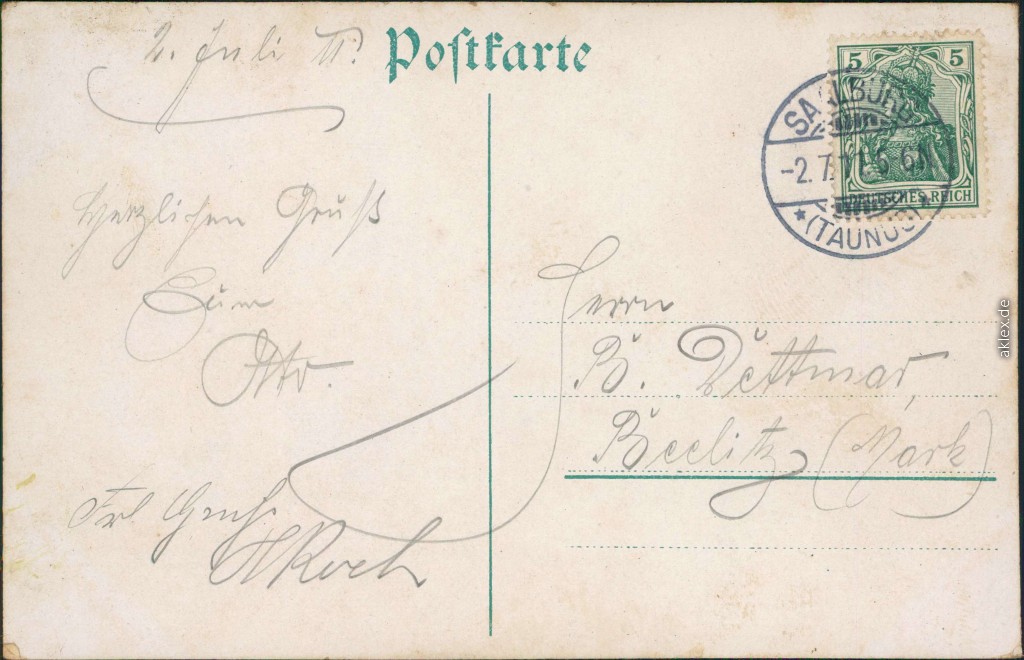 Postkarte
2. Juli 11.
Herzlichen Gruß
Otto.
Frl Gruß.
AKoch
5 5
DEUTSCHES REICH
SAALBURG
-2.7.11.5-6N
*(TAUNUS)*
Herrn
B. Dettmar,
Beelitz (Mark)
aklex.de